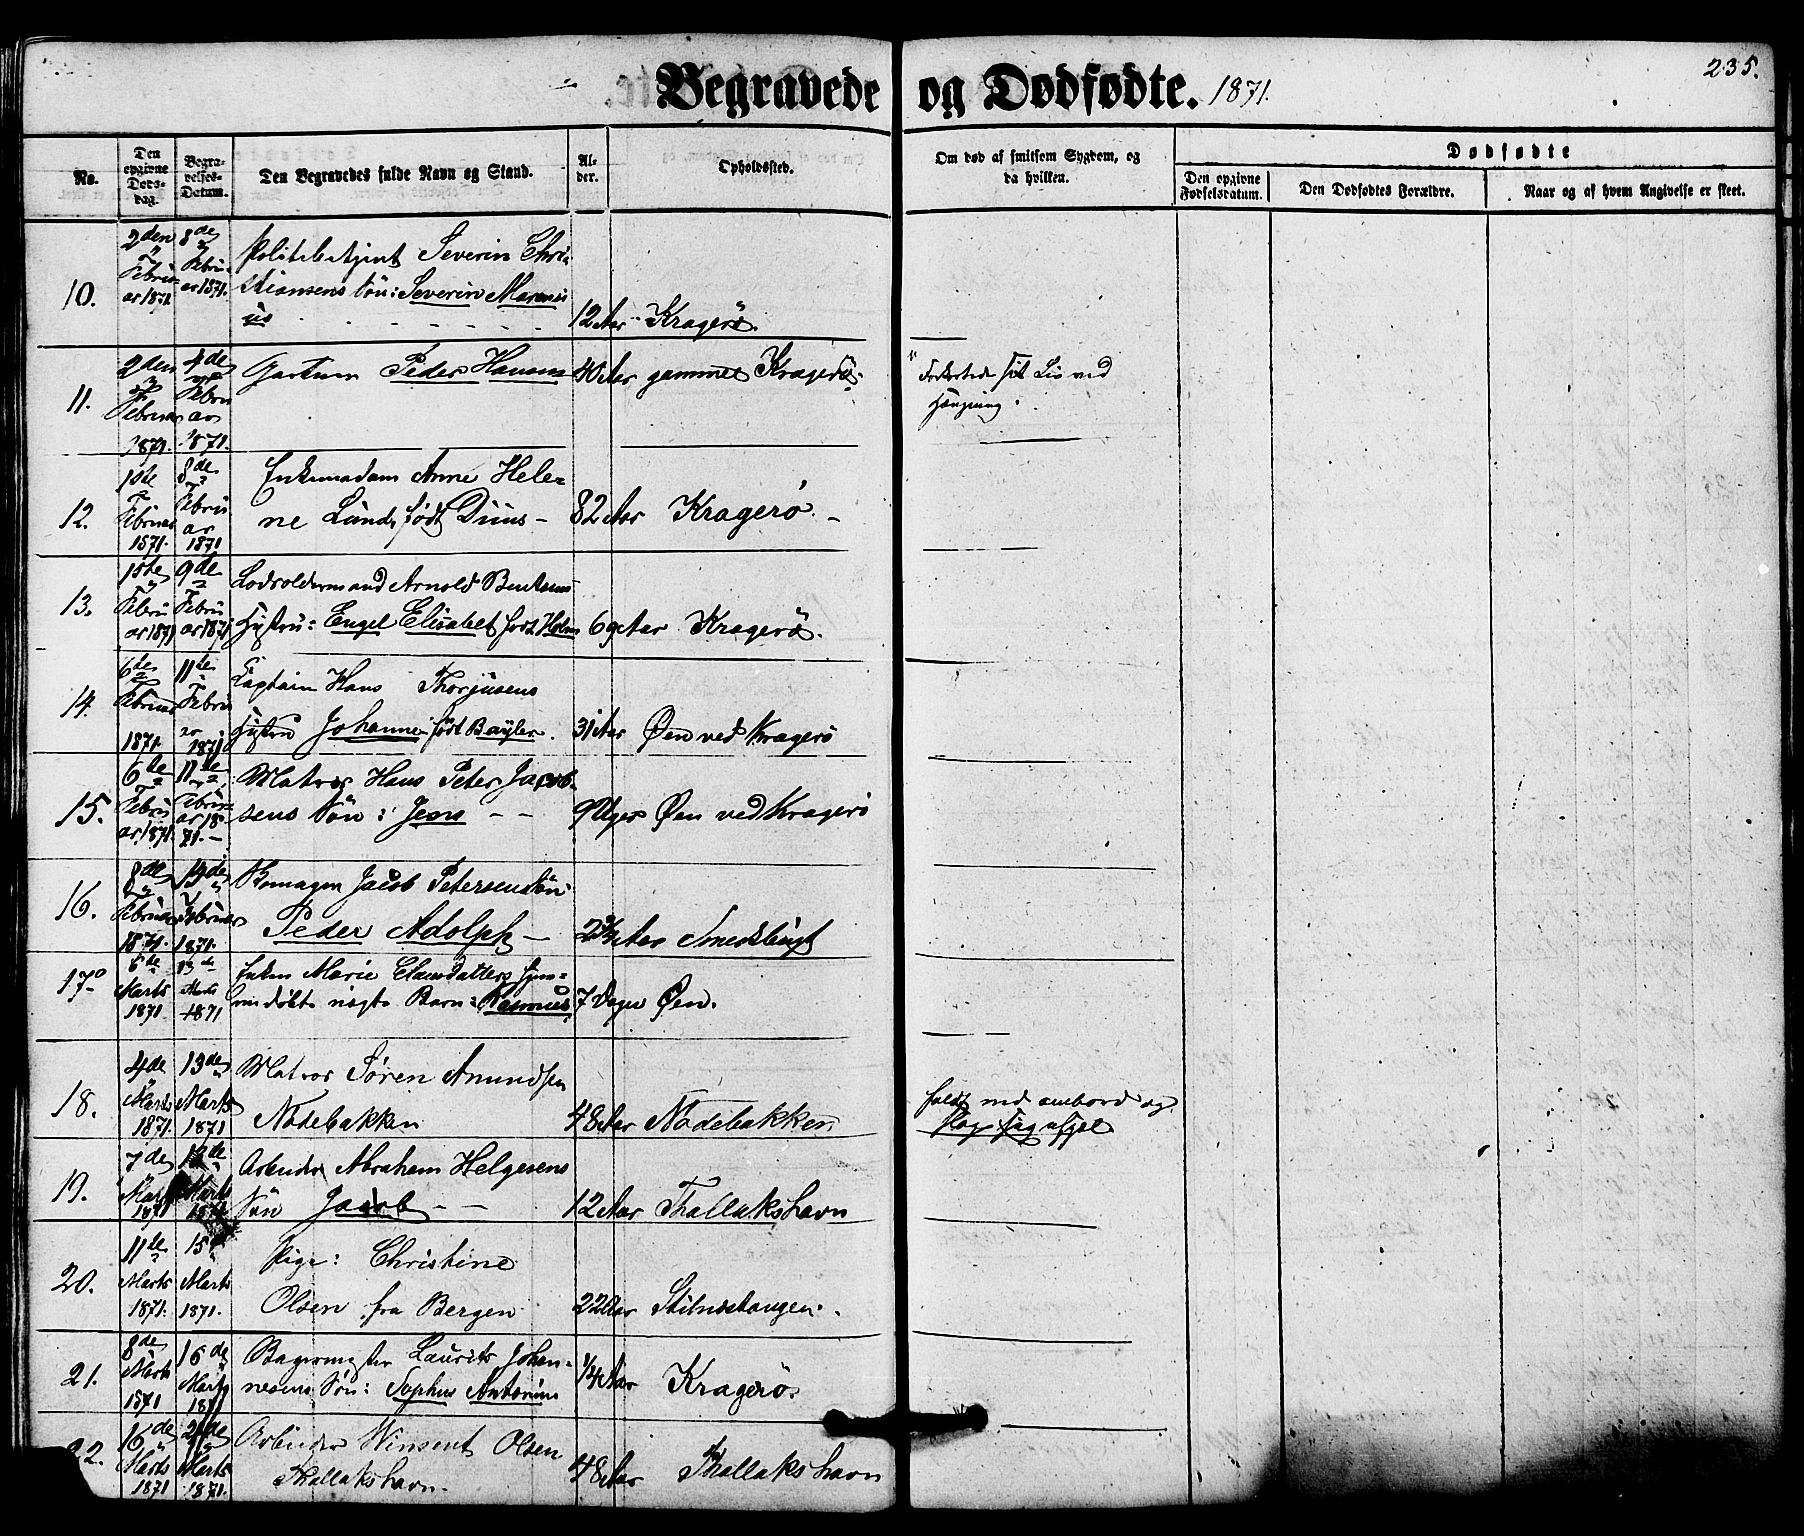 235.
Begravede og Dødfødte. 1871.
No.
Den opgivne Døds-dag.
Begra-velses-Datum.
Den Begravedes fulde Navn og Stand.
Al-der.
Opholdssted.
Om død af smitsom Sygdom, og da hvilken.
Dødfødte
Den opgivne Fødselsdatum.
Den Dødfødtes Forældre.
Naar og af hvem Angivelse er skeet.
10. 2den Februar 1871 8de Februar 1871. Politibetjent Severin Chri-
stiansens Søn: Severin Marensi
us 12 Aar Kragerø.
11. 2den Februar 1871. 4de Februar 1871. Gartner Peder Hansen 40 Aar gammel Kragerø. Forkortede sit Liv ved
Hængning.
12. 1ste Februar 1871. 8de Februar 1871 Enkemadam Anne Hele-
ne Lund, født Duus - 82 Aar Kragerø -
13. 1ste Februar 1871 9de Februar 1871 Lodsoldermand Arnold Bentsens
Hustru: Engel Elisabet født Holm 69 Aar Kragerø.
14. 6te Februar 1871. 11te Februar 1871 Captain Hans Thorjusens
Hustru Johanne født 31 Aar Øen ved Kragerø
15. 6de Februar 1871. 11de Februar 1871. - Matros Hans Peter Jacob-
sens Søn: Jens - - 9 Uger Øen ved Kragerø
16. 8de Februar 1871. Februar 1871. Jacob Petersens Søn
Peder Adolph - Aar Smedsbugt
17. Marts 1871 13de Marts 1871 Enken Marie Clausdatters hjem-
medøbte uægte Barn: Rasmus 7 Dage Øen.
18. 4de Marts 1871. 13de Marts 1871 Matros Søren Amundsen
Nodebakken 48 Aar Nodebakken faldt ned ombord og
slog sig ihjel
19. 7de Marts 1871 Marts 1871 Arbeider Abraham Helgesens
Søn Jacob - - 12 Aar Thallakshavn
20. 11de Marts 1871. 15 Marts 1871. Pige: Christine
Olsen fra Bergen 22 Aar Stilnestangen.
21. 8de Marts 1871 16de Marts 1871 Bagermester Laurits Johan-
nesens Søn: Sophus Antonius 1/4 Aar Kragerø.
22. 16de Marts 1871 Marts 1871. Arbeider Winsent Olsen
Thallakshavn. 48 Aar Thallakshavn